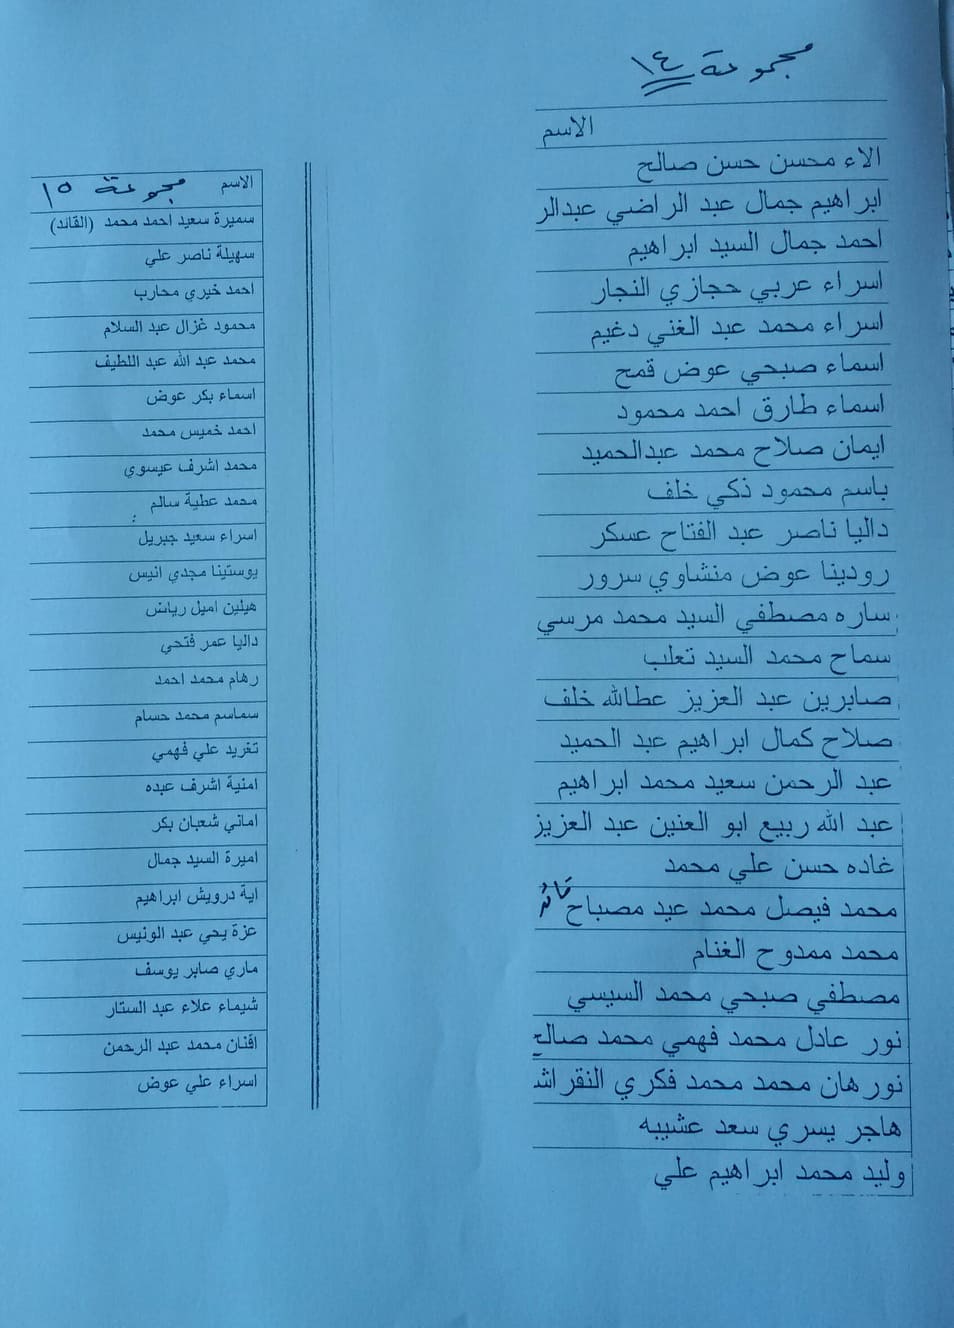 مجموعة ١٤
الاسم
الاء محسن حسن صالح
ابراهيم جمال عبد الراضي عبدالر
احمد جمال السيد ابراهيم
اسراء عربي حجازي النجار
اسراء محمد عبد الغني دغيم
اسماء صبحي عوض قمح
اسماء طارق احمد محمود
ايمان صلاح محمد عبدالحميد
باسم محمود ذكي خلف
داليا ناصر عبد الفتاح عسكر
رودينا عوض منشاوي سرور
ساره مصطفي السيد محمد مرسي
سماح محمد السيد تعلب
صابرين عبد العزيز عطاالله خلف
صلاح كمال ابراهيم عبد الحميد
عبد الرحمن سعيد محمد ابراهيم
عبد الله ربيع ابو العنين عبد العزيز
غاده حسن علي محمد
محمد فيصل محمد عيد مصباح
محمد ممدوح الغنام
مصطفي صبحي محمد السيسي
نور عادل محمد فهمي محمد صالح
نورهان محمد محمد فكري النقراش
هاجر يسري سعد عشيبه
وليد محمد ابراهيم علي
الاسم مجموعة ١٥
سميرة سعيد احمد محمد (القائد)
سهيلة ناصر علي
احمد خيري محارب
محمود غزال عبد السلام
محمد عبد الله عبد اللطيف
اسماء بكر عوض
احمد خميس محمد
محمد اشرف عيسوي
محمد عطية سالم
اسراء سعيد جبريل
يوستينا مجدي انيس
هيلين اميل رياض
داليا عمر فتحي
رهام محمد احمد
سماسم محمد حسام
تغريد علي فهمي
امنية اشرف عبده
اماني شعبان بكر
اميرة السيد جمال
اية درويش ابراهيم
عزة يحي عبد الونيس
ماري صابر يوسف
شيماء علاء عبد الستار
افنان محمد عبد الرحمن
اسراء علي عوض